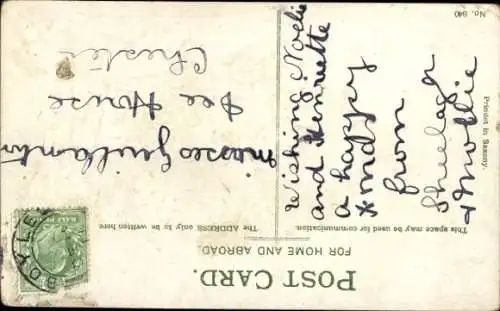 POST CARD.
FOR HOME AND ABROAD.
This space may be used for communication.
The ADDRESS only to be written here.
Wishing Noelie
and Henriette
a happy
Xmas
from
Sheelagh
& Mollie
Misses
Dee House
Chester
BOYLE
HALF PENNY
Printed in Saxony.
No. 840